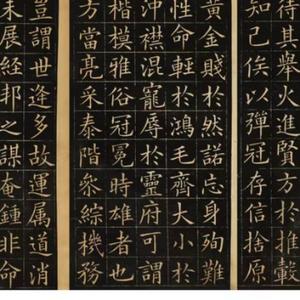 待其舉火進賢方於推轂
知己俟以彈冠存信捨原
黄金賤於然諾忘身殉難
性命輕於鴻毛齊大小於
沖襟混寵辱於靈府可謂
楷模雅俗冠冕時雄者也
方當亮采泰階叅綜機務
豈謂世逢多故運属道消
未展經邦之謀奄鍾非命